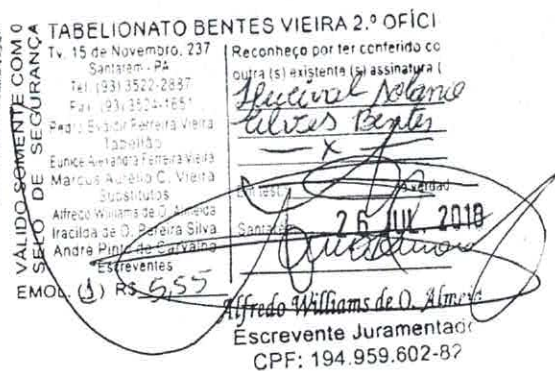 TABELIONATO BENTES VIEIRA 2.º OFÍCI
Tv. 15 de Novembro, 237
Santarém - PA
Tel: (93) 3522-2837
Fax: (93) 3524-1651
Pedro Evaldir Ferreira Vieira
Tabelião
Eunice Alexandra Ferreira Vieira
Marcus Aurélio C. Vieira
Substitutos
Alfredo Williams de O. Almeida
Iracilda de O. Pereira Silva
Andre Pinto de Carvalho
Escreventes
EMOL. (1) R$ 5,55
Reconheço por ter conferido co
outra (s) existente (s) assinatura (
Solano
Alves Bentes
x
Em test. da verdad
Santarém 26 JUL. 2010
Alfredo Williams de O. Almeid
Escrevente Juramentado
CPF: 194.959.602-82
VÁLIDO SOMENTE COM O
SELO DE SEGURANÇA